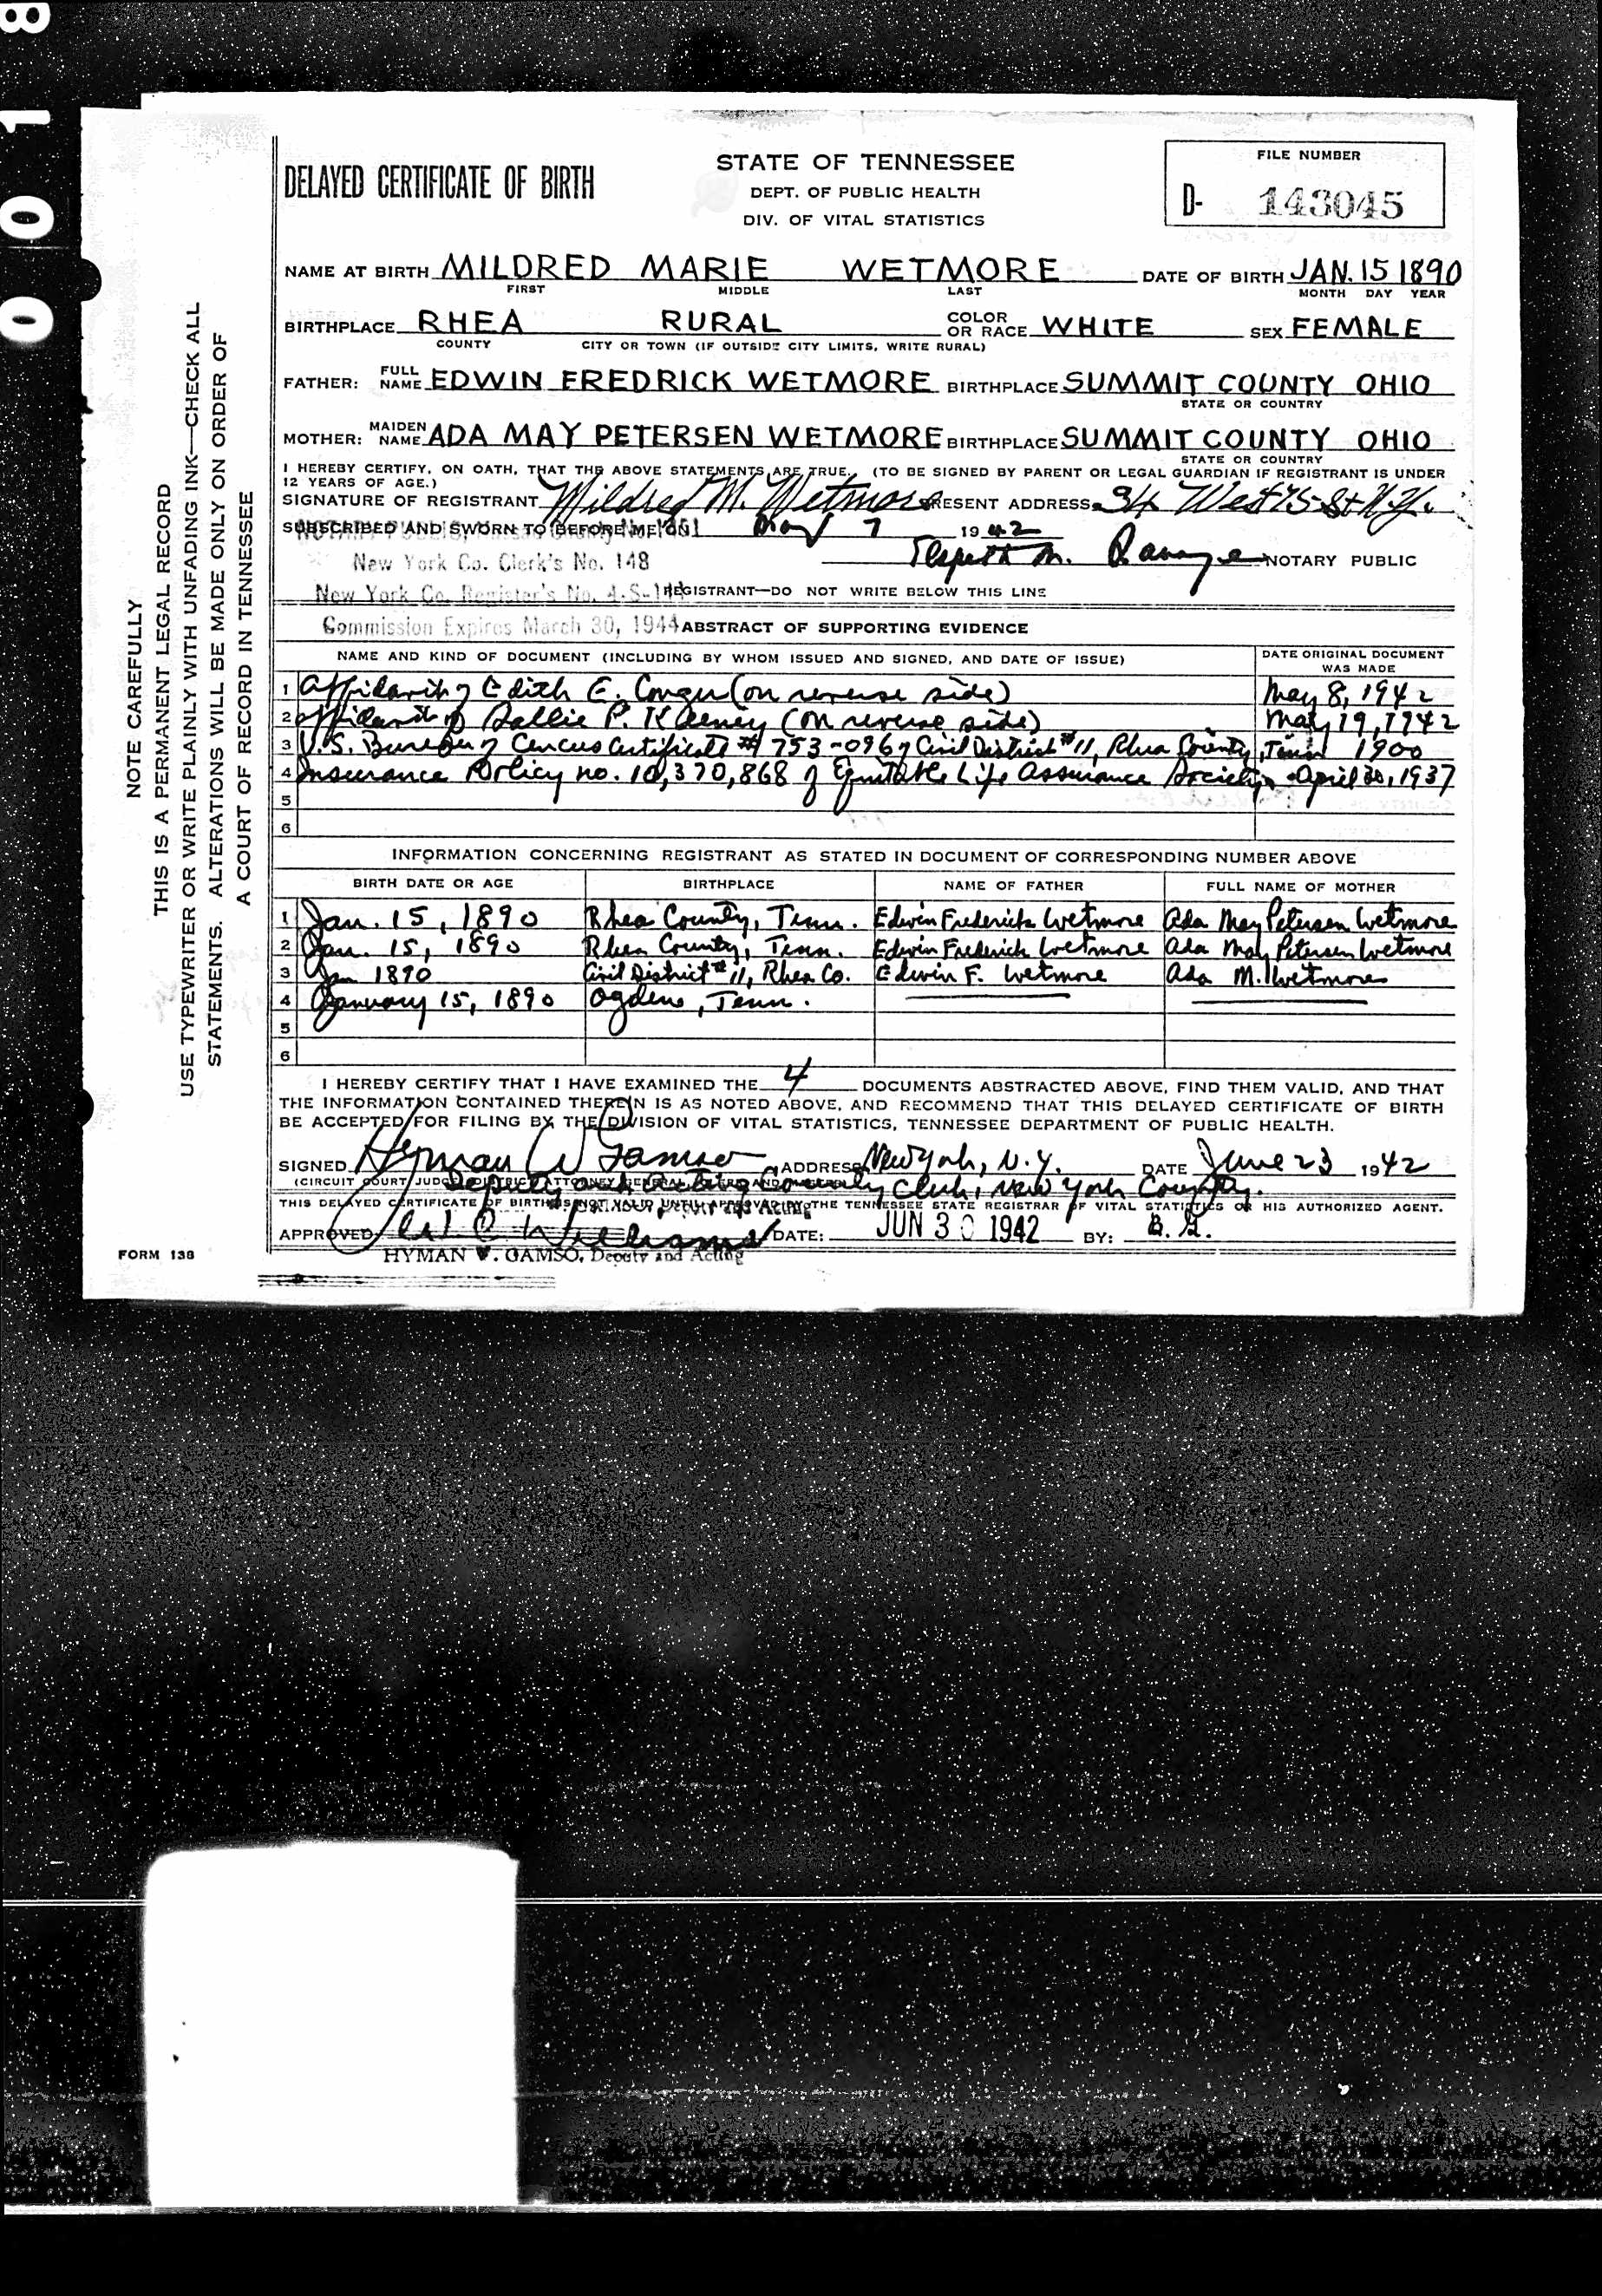 0018
NOTE CAREFULLY
THIS IS A PERMANENT LEGAL RECORD
USE TYPEWRITER OR WRITE PLAINLY WITH UNFADING INK—CHECK ALL
STATEMENTS. ALTERATIONS WILL BE MADE ONLY ON ORDER OF
A COURT OF RECORD IN TENNESSEE
DELAYED CERTIFICATE OF BIRTH
STATE OF TENNESSEE
DEPT. OF PUBLIC HEALTH
DIV. OF VITAL STATISTICS
FILE NUMBER
D- 143045
NAME AT BIRTH MILDRED MARIE WETMORE DATE OF BIRTH JAN. 15 1890
FIRST MIDDLE LAST MONTH DAY YEAR
BIRTHPLACE RHEA RURAL COLOR OR RACE WHITE SEX FEMALE
COUNTY CITY OR TOWN (IF OUTSIDE CITY LIMITS, WRITE RURAL)
FATHER: FULL NAME EDWIN FREDRICK WETMORE BIRTHPLACE SUMMIT COUNTY OHIO
STATE OR COUNTRY
MOTHER: MAIDEN NAME ADA MAY PETERSEN WETMORE BIRTHPLACE SUMMIT COUNTY OHIO
STATE OR COUNTRY
I HEREBY CERTIFY, ON OATH, THAT THE ABOVE STATEMENTS ARE TRUE. (TO BE SIGNED BY PARENT OR LEGAL GUARDIAN IF REGISTRANT IS UNDER
12 YEARS OF AGE.)
SIGNATURE OF REGISTRANT Mildred M. Wetmore PRESENT ADDRESS 34 West 75 St N.Y.
SUBSCRIBED AND SWORN TO BEFORE ME ON May 7 1942
New York Co. Clerk's No. 148
M. NOTARY PUBLIC
New York Co. Register's No. 4-S-144
REGISTRANT—DO NOT WRITE BELOW THIS LINE
Commission Expires March 30, 1944
ABSTRACT OF SUPPORTING EVIDENCE
NAME AND KIND OF DOCUMENT (INCLUDING BY WHOM ISSUED AND SIGNED, AND DATE OF ISSUE) DATE ORIGINAL DOCUMENT WAS MADE
1 Affidavit of Edith E. Conger (on reverse side) May 8, 1942
2 Affidavit of Sallie P. Keeney (on reverse side) May 19, 1942
3 U.S. Bureau of Census Certificate # 753-096 of Civil District #11, Rhea County, Tenn 1900
4 Insurance Policy no. 10,370,868 of Equitable Life Assurance Society April 30, 1937
5
6
INFORMATION CONCERNING REGISTRANT AS STATED IN DOCUMENT OF CORRESPONDING NUMBER ABOVE
BIRTH DATE OR AGE BIRTHPLACE NAME OF FATHER FULL NAME OF MOTHER
1 Jan. 15, 1890 Rhea County, Tenn. Edwin Frederick Wetmore Ada May Petersen Wetmore
2 Jan. 15, 1890 Rhea County, Tenn. Edwin Frederick Wetmore Ada May Petersen Wetmore
3 Jan 1890 Civil District #11, Rhea Co. Edwin F. Wetmore Ada M. Wetmore
4 January 15, 1890 Ogden, Tenn.
5
6
I HEREBY CERTIFY THAT I HAVE EXAMINED THE 4 DOCUMENTS ABSTRACTED ABOVE, FIND THEM VALID, AND THAT
THE INFORMATION CONTAINED THEREIN IS AS NOTED ABOVE, AND RECOMMEND THAT THIS DELAYED CERTIFICATE OF BIRTH
BE ACCEPTED FOR FILING BY THE DIVISION OF VITAL STATISTICS, TENNESSEE DEPARTMENT OF PUBLIC HEALTH.
SIGNED Hyman W Gamso ADDRESS New York, N.Y. DATE June 23 1942
Deputy and Acting County Clerk, New York County.
THIS DELAYED CERTIFICATE OF BIRTH IS NOT VALID UNTIL APPROVED BY THE TENNESSEE STATE REGISTRAR OF VITAL STATISTICS OR HIS AUTHORIZED AGENT.
APPROVED: Williams DATE: JUN 30 1942 BY:
HYMAN W. GAMSO, Deputy and Acting
FORM 138